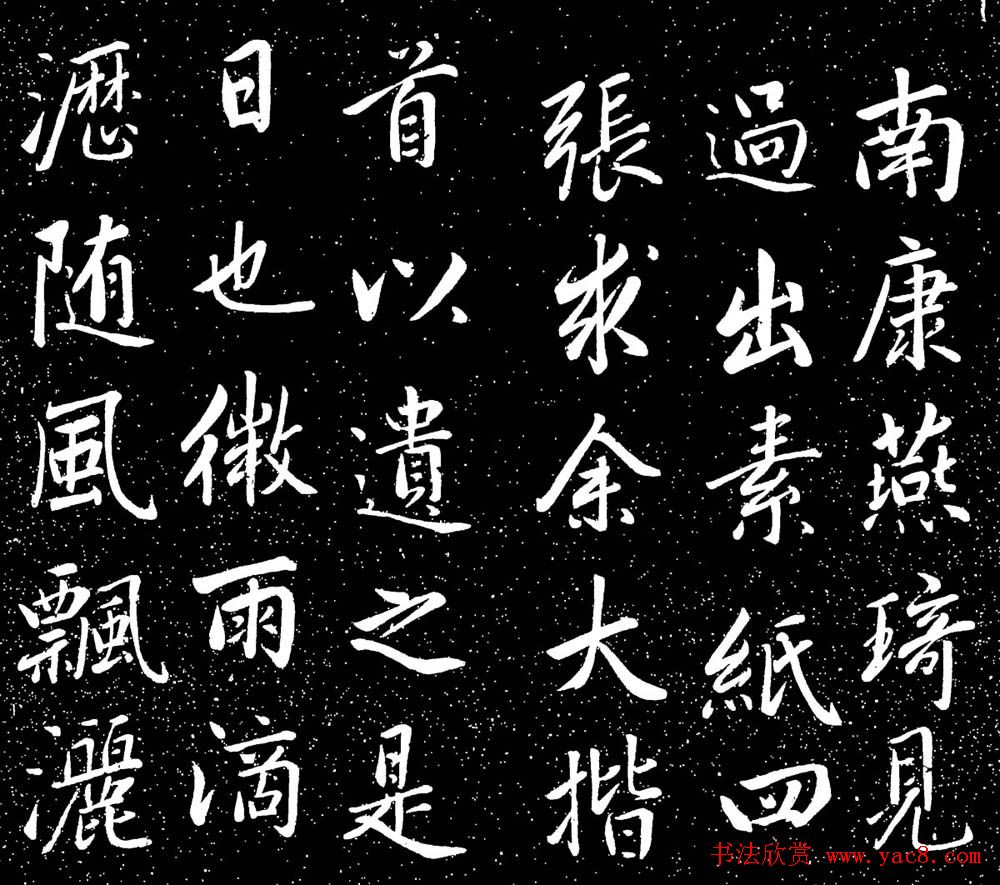 南康燕琦見
過出素紙四
張求余大揩
首以遺之是
日也微雨滴
瀝随風飄灑
书法欣赏 www.yac8.com